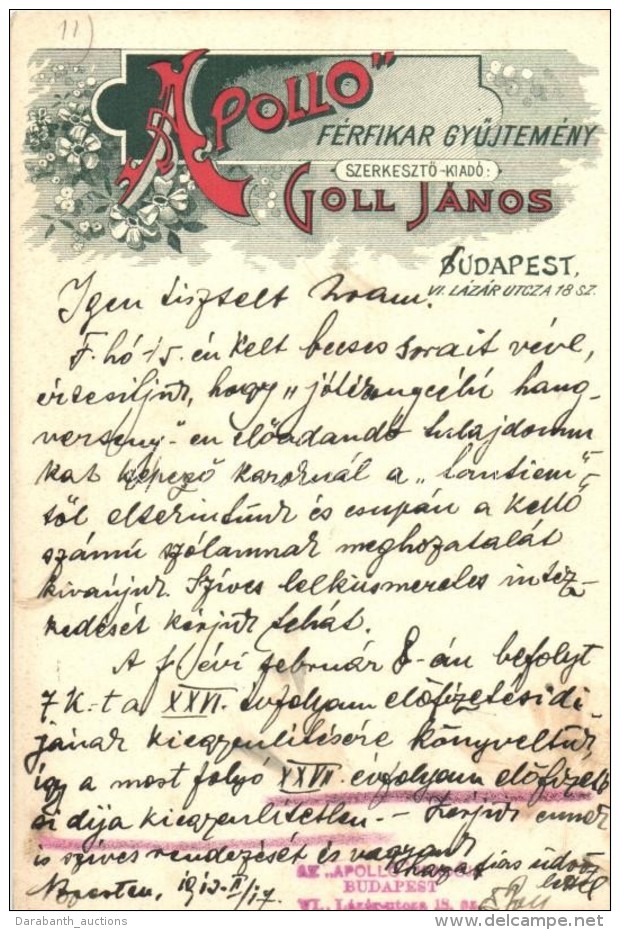 11)
"Apollo"
FÉRFIKAR GYŰJTEMÉNY
SZERKESZTŐ-KIADÓ:
GOLL JÁNOS
BUDAPEST,
VI. LÁZÁR UTCZA 18 SZ.
Igen tisztelt Uram.
F. hó 15.-én kelt becses sorait véve,
értesitjük, hogy "jótékonyczélú hang-
verseny"-en előadandó tulajdonun
kat képező karoknál a "tantiem"-
től eltekintünk és csupán a kellő
számú szólamnak meghozatalát
kivánjuk. Szives lelkiismeretes intéz-
kedését kérjük tehát.
A f. évi február 8-án befolyt
7 K.-t a XXVI. évfolyam előfizetési di-
jának kiegyenlitésére könyveltük,
így a most folyo XXVII. évfolyam előfizeté
si dija kiegyenlitetlen. - Kérjük ennek
is szives rendezését és vagyunk
hazafias üdvöz
lettel
Bpesten, 1912. II/17.
AZ "APOLLO"
BUDAPEST
VI., Lázár-utcza 18. sz.
Darabanth_auctions
delcampe.net